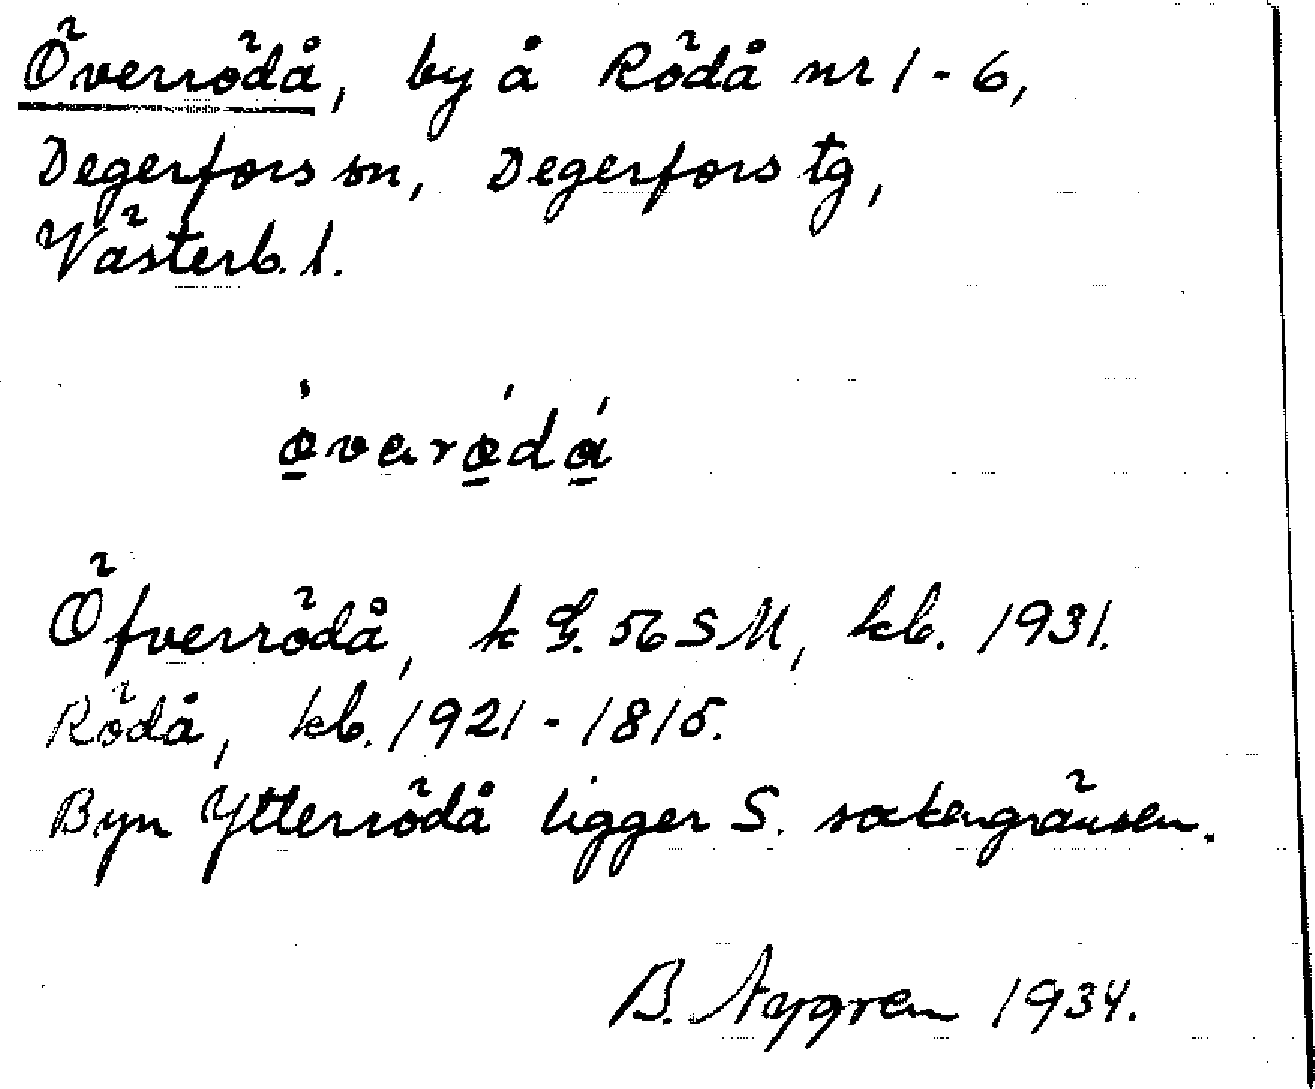 Överrödå, by å Rödå nr 1-6,
Degerfors sn, Degerfors tg,
Västerb. l.
övarödå
Öfverrödå, k G. 56 SM, kb. 1931.
Rödå, kb. 1921-1815.
Byn Ytterrödå ligger S. sockengränsen.
B. Nygren 1934.